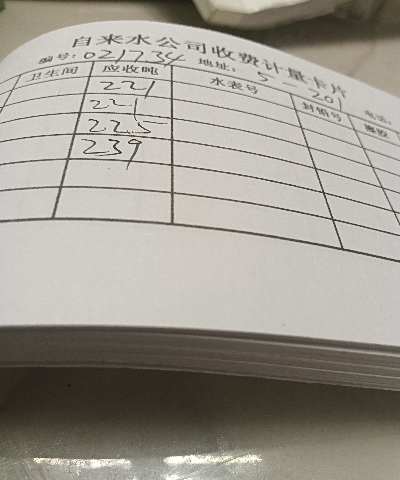 自来水公司收费计量卡片
编号:021734 地址:5-201 电话:
卫生间 应收吨 水表号 封铅号
221
221
225
239